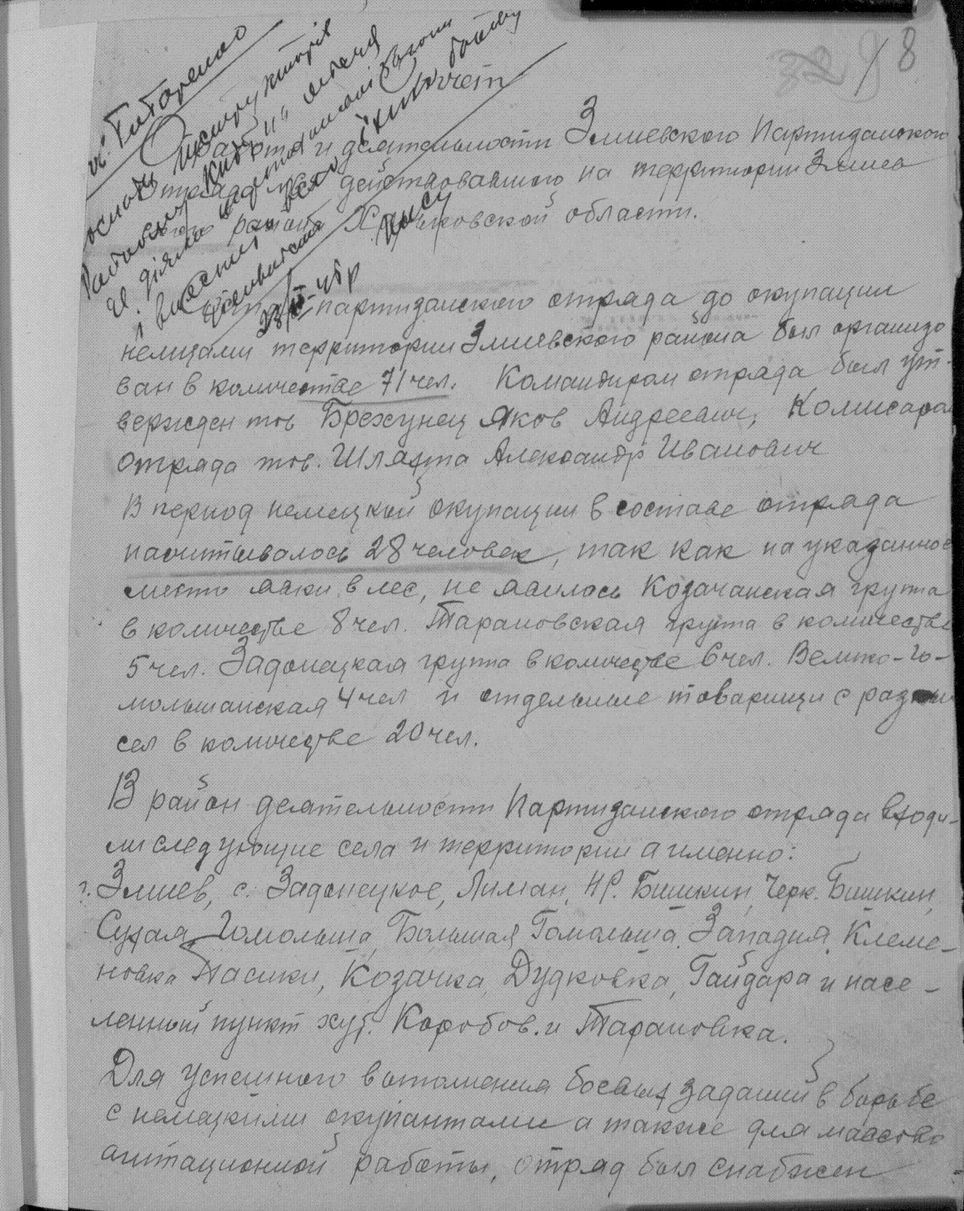 8
т. Титаренко
Отчет
О работе и деятельности Змиевского Партизанского
отряда действовавшего на территории Змиев-
ского района Харьковской области.
28/II-43р
партизанского отряда до окупации
немцами территории Змиевского района был организо
ван в количестве 71 чел. Командиром отряда был ут-
вержден тов Брехунец Яков Андреевич, Комисаром
отряда тов. Шляхта Александр Иванович
В период немецкой окупации в составе отряда
насчитывалось 28 человек, так как на указанное
место явки в лес, не явилось Козачанская група
в количестве 8 чел. Тарановская група в количестве
5 чел. Задонецкая група в количестве 6 чел. Велико-Го-
мольшанская 4 чел и отдельные товарищи с разных
сел в количестве 20 чел.
В район деятельности Партизанского отряда входи-
ли следующие села и территории а именно:
г. Змиев, с. Задонецкое, Лиман, НР. Бишкин, Черк. Бишкин,
Сухая Гомольша, Большая Гомольша, Западня, Клеме-
новка Пасики, Козачка, Дудковка, Гайдара и насе-
ленный пункт хут. Коробов. и Тарановка.
Для успешного выполнения боевых заданий в борьбе
с немецкими окупантами а также для массово
агитационной работы, отряд был снабжен